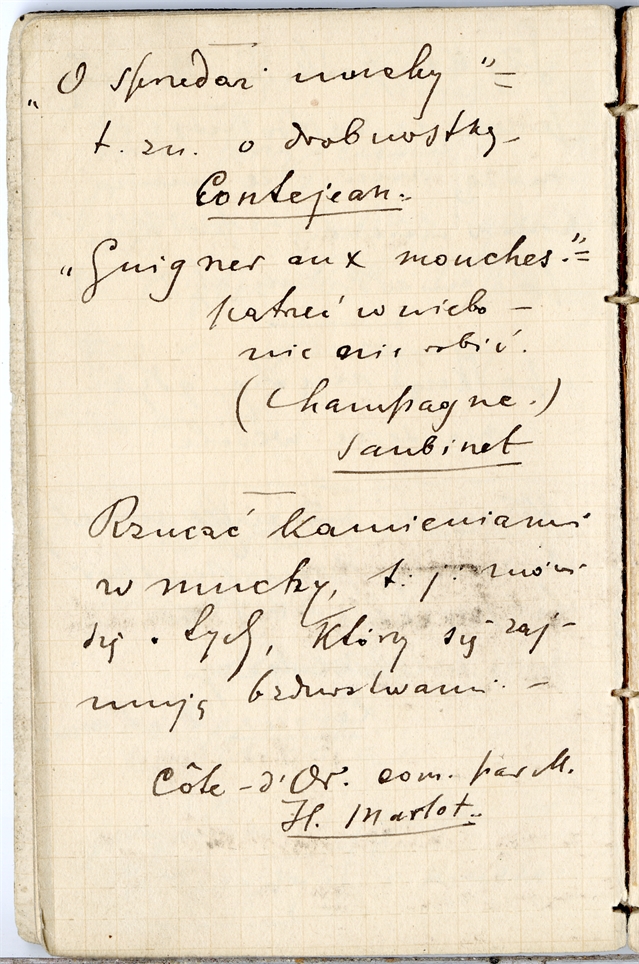 „O sprzedaż muchy" =
t. zn. o drobnostkę –
Contejean.
„Guigner aux mouches." =
patrzeć w niebo –
nic nie robić.
(Champagne.)
Saubinet
Rzucać kamieniami
w muchy, t. j. mówi
się o tych, którzy się zaj-
mują bzdurstwami. –
Côte-d'Or. com. par M.
H. Marlot.